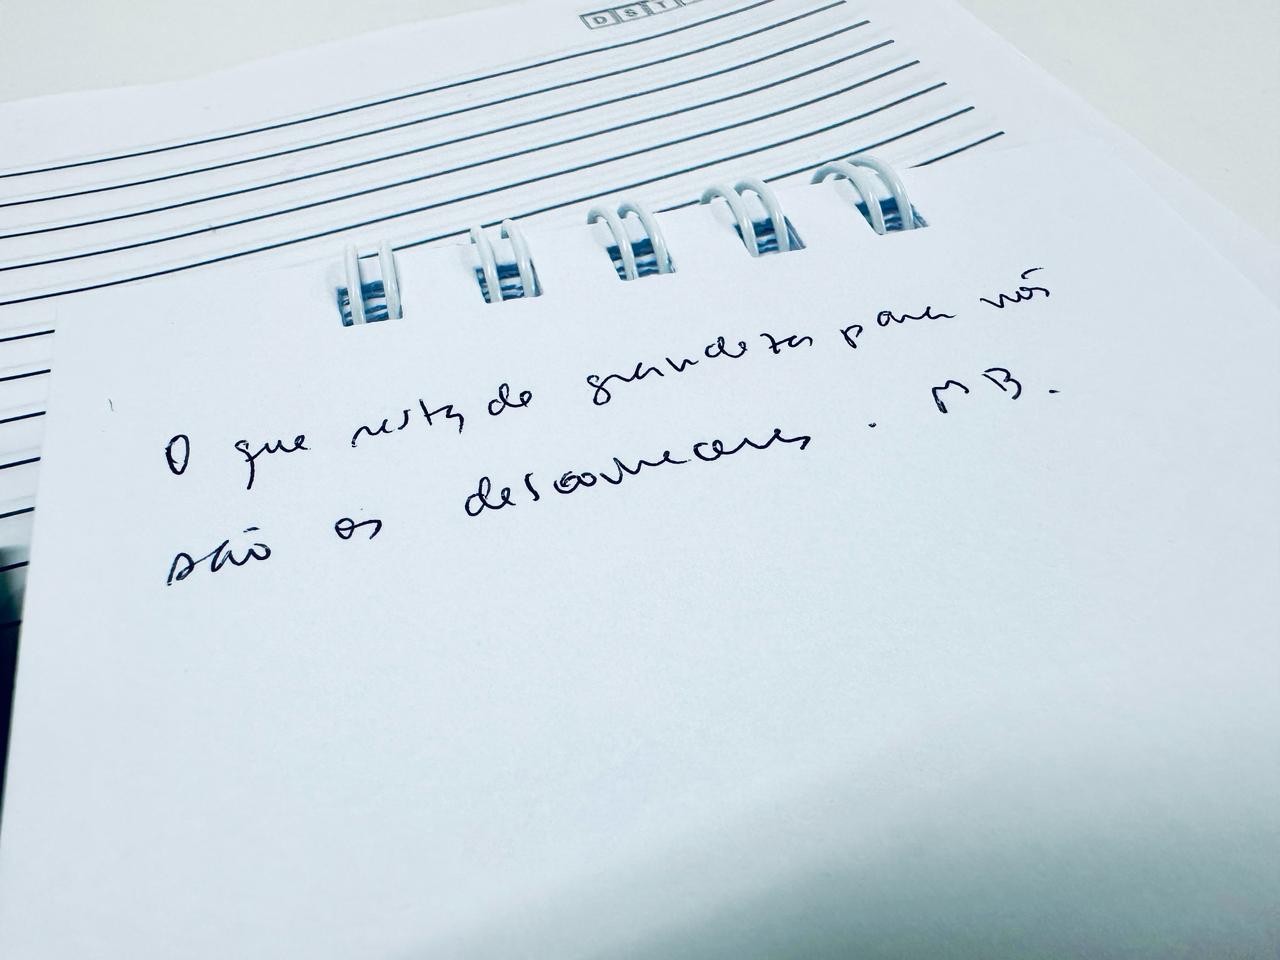 D S T
O que resta de grandeza para nós
são os desconheceres. MB.